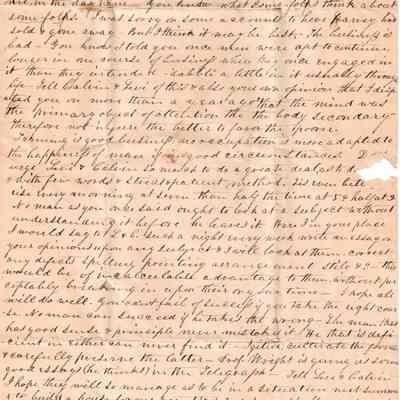 are, in the day time – You know what some folks think about
some folks. I was sorry on some accounts to hear Harvey had
sold & gone away – But I think it may be best – The business is
bad – You know I told you once men were apt to continue
longer in one course of business when they once engaged in
it than they intended – habit a little in it usually through
life – Tell Calvin & Levi of this & also your own opinion that I
you on more than a year ago that the mind was
the primary object of attention the the body secondary
therefore not injure the better to favor the poorer
Farming is good business, no occupation is more adapted to
the happiness of man if in good circumstances. D
Levi & Calvin so much to do a great deal, as to do
with few words & strict method.
rise every morning at seven than half the time at 5 & half at
it a man is you nis said ought to look at a subject without
understanding it before he leaves it. Were I in your place
I would say to L & C. Such a night every week write an essay or
your opinions upon any subject & I will look at them. correct
any defects spelling pointing arrangement stile &c – this
would be of incalculable advantage to them, without per
ceptably breaking in upon their or your time – I hope all
will do well. You can't fail of success if you take the right cour
se. No man can succeed if he takes the wrong – The man that
has good sense & principle never mistakes it. He that is defi
cient in either can never find it – Then cultivate the
& carefully preserve the latter – Prof Wright is giving us some
good essays (he thinks) in the Telegraph – Tell Levi & Calvin
I hope they will so manage as to be in a situation next summer
to build a house